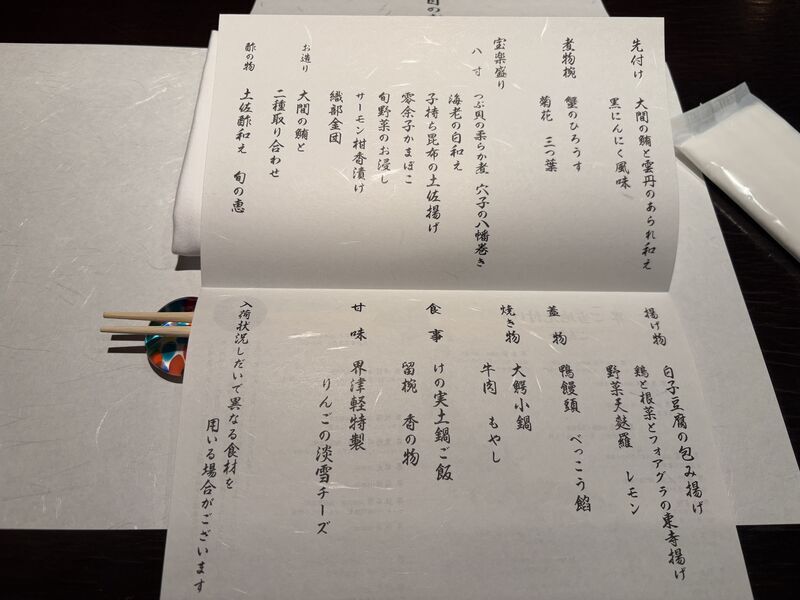 先付け
大間の鮪と雲丹のあられ和え
黒にんにく風味
煮物椀
蟹のひろうす
菊花 三つ葉
宝楽盛り
八寸
つぶ貝の柔らか煮 穴子の八幡巻き
海老の白和え
子持ち昆布の土佐揚げ
零余子かまぼこ
旬野菜のお浸し
サーモン柑香漬け
織部金団
お造り
大間の鮪と
二種取り合わせ
酢の物
土佐酢和え 旬の恵
揚げ物
白子豆腐の包み揚げ
鶏と根菜とフォアグラの東寺揚げ
野菜天麩羅 レモン
蓋物
鴨饅頭 べっこう餡
焼き物
大鰐小鍋
牛肉 もやし
食事
けの実土鍋ご飯
留椀 香の物
甘味
界津軽特製
りんごの淡雪チーズ
入荷状況しだいで異なる食材を
用いる場合がございます